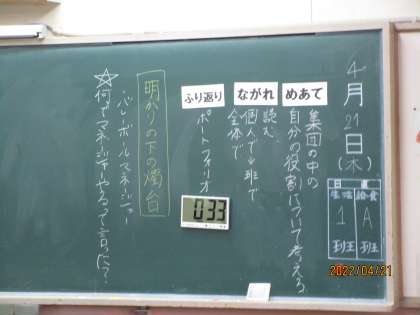 4月21日(木)
日直
生活 給食
1 A
班 班
めあて
集団の中の
自分の役割について考える
ながれ
読む
個人で→班で
全体で
ふり返り
ポートフォリオ
033
明かりの下の燭台
・バレーボールマネージャー
☆何でマネージャーやるって言った？
2022/04/21